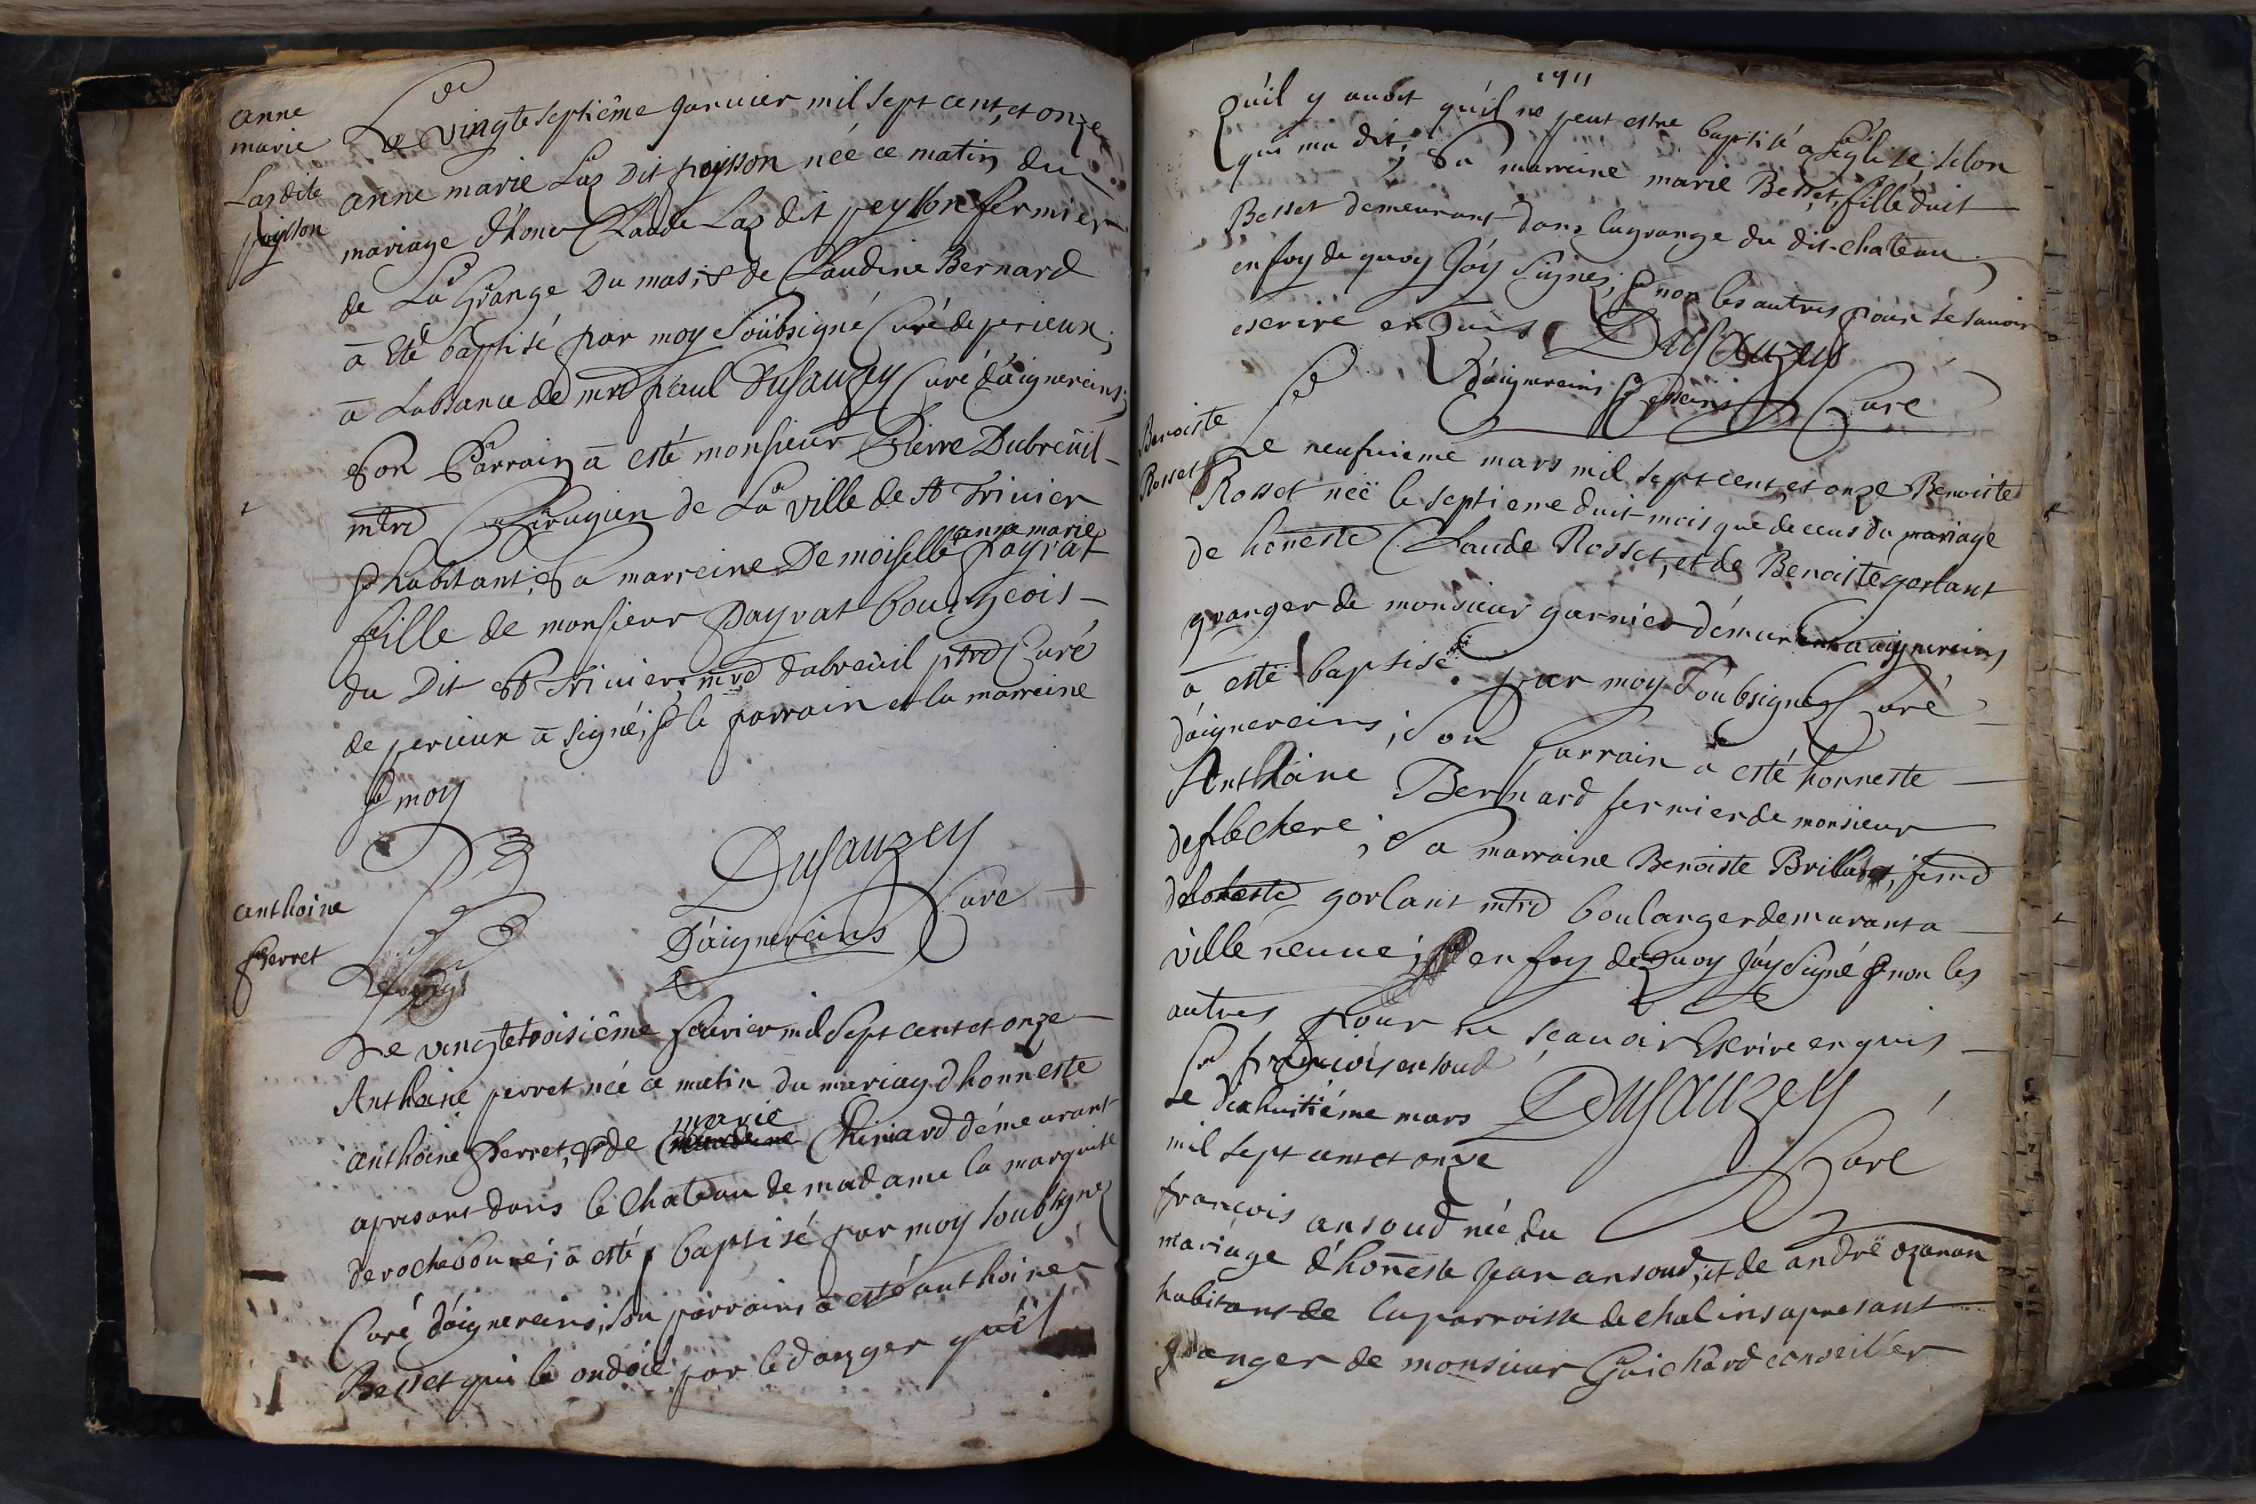 anne
marie
Laz dite
poisson
Le vingt septiême Januier mil sept cent, et onze
anne marie Laz Dit poysson née ce matin du
mariage d'hone Claude Laz dit peysson fermier
de La Grange Du mas; & de Claudine Bernard
à Eté baptisé par moy Soûbsigné Curé de perieux;
à Labsance de mre paul Dusauzey Curé d'aignereins;
Son Parrain à esté monsieur Pierre Dubreüil
mtre Chirugien de La ville de St Trivier
& habitant; Sa marreine Demoiselle anne marie Payrat
fille de monsieur payrat bourgeois
du Dit St Trivier; mre dubreüil ptre Curé
de perieux à signé; & le parrain et la marreine
& moy
Dusauzey
D'aignereins Curé
anthoine
Perret
Le vingt troisiême feurier mil sept cent et onze
Anthoine perret née ce matin du mariag d'honneste
anthoine Perret, & de marie Chiniard démeurant
apresant dans le Chateau de madame la marquise
de rochebonne; à esté baptisé par moy soubsigné
Curé d'aignereins; Son parrains à esté anthoine
Besset qui la ondoié par le danger quél
1711
Quil y auoit qu'il ne peut estre baptisé a Léglise, selon
qui ma dit; Sa marreine marie Besset, fille duit
Besset demeurant dans lagrange du dit chateau
en foy de quoy J'ay Signez; & non les autres pour ne sauoir
escrire enquis Dusauzey
D'aignereins & Curé
Benoiste
Rosset
Le neufuieme mars mil sept cent et onze Benoiste
Rosset néë le septieme duit mois que deceus du mariage
de honneste Claude Rosset, et de Benoiste gorlant
granger de monsieur garnier démurant a aignereins
à esté baptisé par moy Soûbsignez Curé
d'aignereins; Son Parrain a esté honneste
Anthoine Bernard fermier de monsieur
deflechere; Sa marraine Benoiste Brillant, feme
de honeste gorlant mtre boulanger demurant a
ville neuue; en foy de quoy J'ay Signé & non les
autres pour ne sçauoir Escrire enquis
françois ansoud
Le dixhuitiéme mars Dusauzey
mil sept cent et onze Curé
françois ansoud née du
mariage d'honneste Jean ansoud, et de andré ozanan
habitans de la parroisse de chalins apresant
granger de monsieur Guichard conseiller